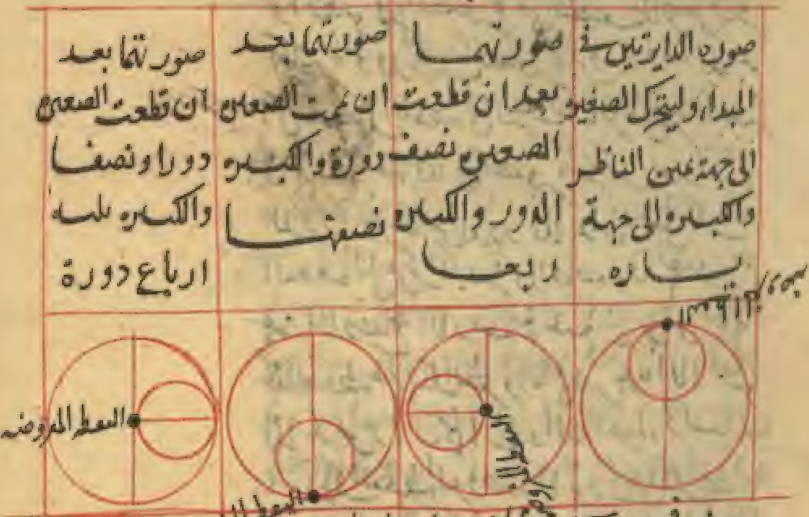 صوره الدايرتين في
المبدا، وليتحرك الصغيره
الى جهة يمين الناظر
والكبيره الى جهة
يساره
صورتهما
بعد ان قطعت
الصغيره نصف
الدور والكبيره
ربعا
صورتهما بعد
ان تمت الصغيره
دورة والكبيره
نصفها
صورتهما بعد
ان قطعت الصغيره
دورا ونصفا
والكبيره ثلثه
ارباع دورة
النقطة المفروضه
النقطة المفروضه
النقطة
النقطه المفروضه